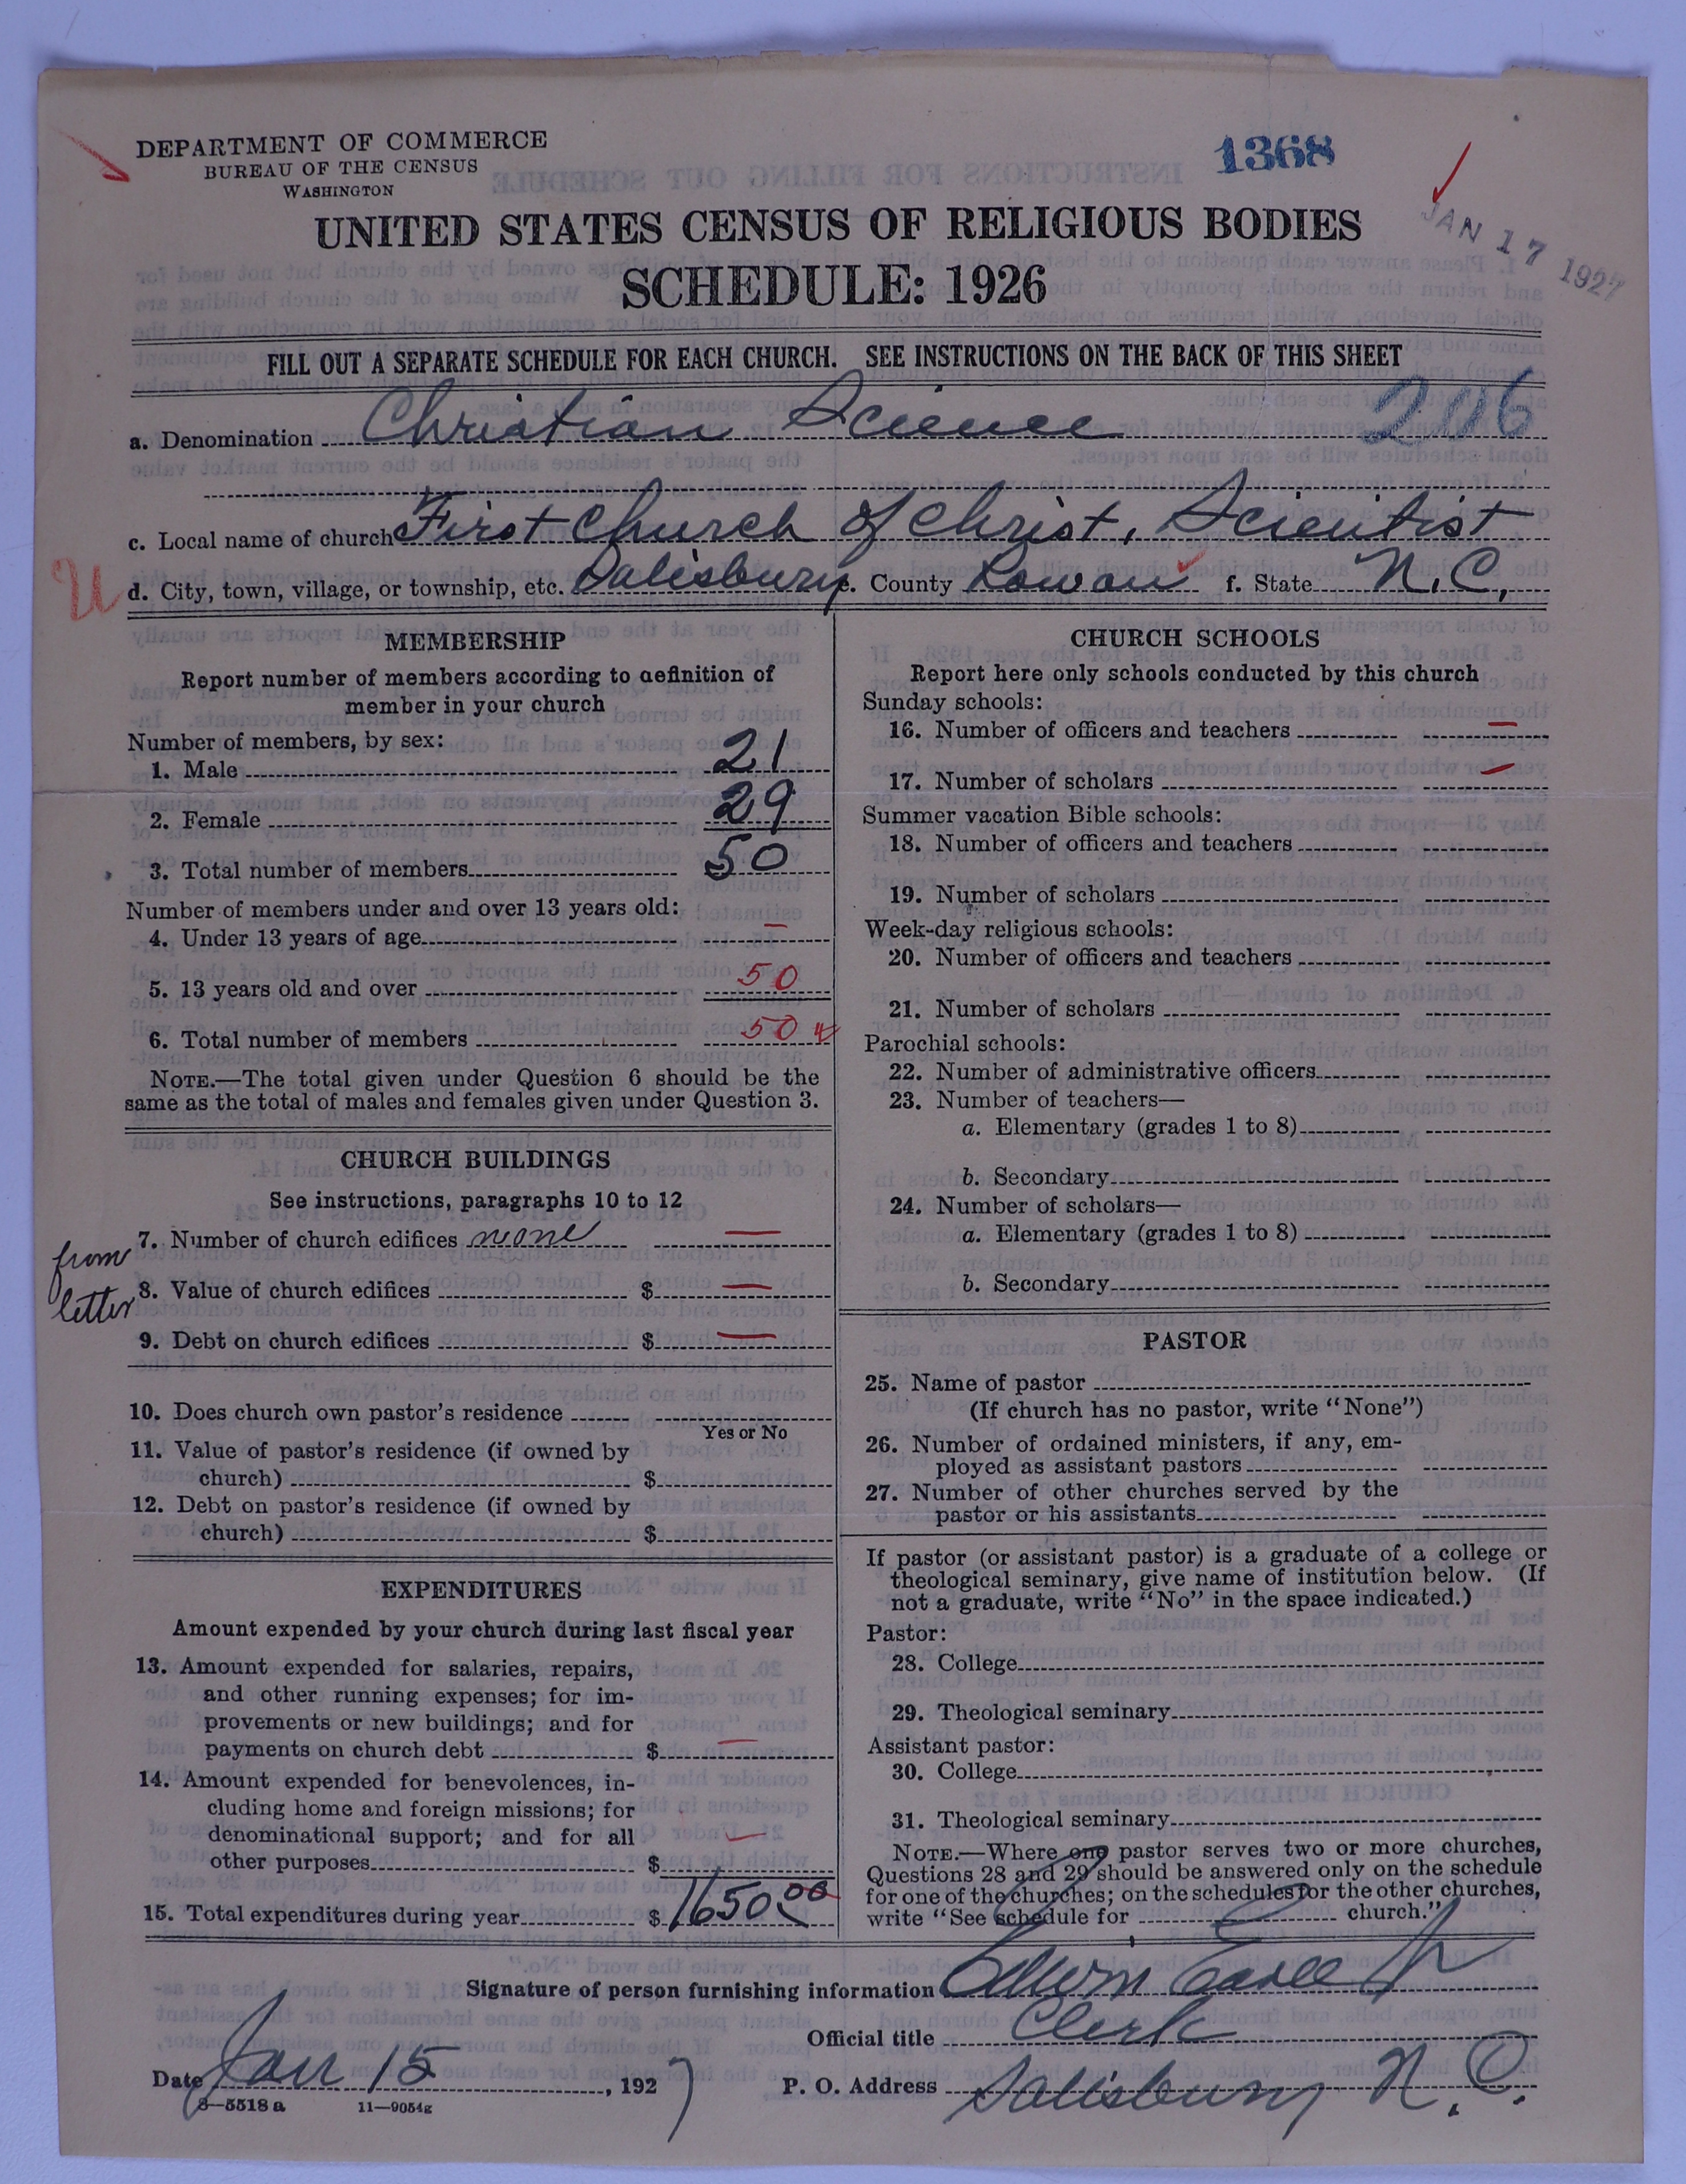 DEPARTMENT OF COMMERCE
BUREAU OF THE CENSUS
WASHINGTON
1368
UNITED STATES CENSUS OF RELIGIOUS BODIES
JAN 17 1927
SCHEDULE: 1926
FILL OUT A SEPARATE SCHEDULE FOR EACH CHURCH. SEE INSTRUCTIONS ON THE BACK OF THIS SHEET
a. Denomination Christian Science 206
c. Local name of church First Church of Christ, Scientist
U d. City, town, village, or township, etc. Salisbury e. County Rowan f. State N.C.
MEMBERSHIP
Report number of members according to definition of
member in your church
Number of members, by sex:
1. Male 21
2. Female 29
3. Total number of members 50
Number of members under and over 13 years old:
4. Under 13 years of age —
5. 13 years old and over 50
6. Total number of members 50
NOTE.—The total given under Question 6 should be the
same as the total of males and females given under Question 3.
CHURCH BUILDINGS
See instructions, paragraphs 10 to 12
7. Number of church edifices none —
from letter
8. Value of church edifices $ —
9. Debt on church edifices $ —
10. Does church own pastor's residence
Yes or No
11. Value of pastor's residence (if owned by
church) $
12. Debt on pastor's residence (if owned by
church) $
EXPENDITURES
Amount expended by your church during last fiscal year
13. Amount expended for salaries, repairs,
and other running expenses; for im-
provements or new buildings; and for
payments on church debt $ —
14. Amount expended for benevolences, in-
cluding home and foreign missions; for
denominational support; and for all
other purposes $ —
15. Total expenditures during year $ 1650 00
CHURCH SCHOOLS
Report here only schools conducted by this church
Sunday schools:
16. Number of officers and teachers —
17. Number of scholars —
Summer vacation Bible schools:
18. Number of officers and teachers
19. Number of scholars
Week-day religious schools:
20. Number of officers and teachers
21. Number of scholars
Parochial schools:
22. Number of administrative officers
23. Number of teachers—
a. Elementary (grades 1 to 8)
b. Secondary
24. Number of scholars—
a. Elementary (grades 1 to 8)
b. Secondary
PASTOR
25. Name of pastor
(If church has no pastor, write "None")
26. Number of ordained ministers, if any, em-
ployed as assistant pastors
27. Number of other churches served by the
pastor or his assistants
If pastor (or assistant pastor) is a graduate of a college or
theological seminary, give name of institution below. (If
not a graduate, write "No" in the space indicated.)
Pastor:
28. College
29. Theological seminary
Assistant pastor:
30. College
31. Theological seminary
NOTE.—Where one pastor serves two or more churches,
Questions 28 and 29 should be answered only on the schedule
for one of the churches; on the schedules for the other churches,
write "See schedule for church."
Signature of person furnishing information Jr
Official title Clerk
Date Jan 15, 1927 P. O. Address Salisbury N. C.
8—5518 a 11—9054g